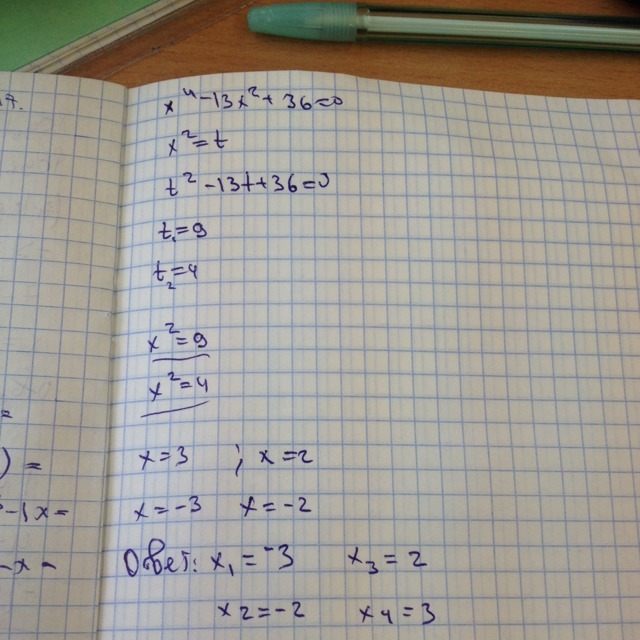 x⁴-13x²+36=0
x²=t
t²-13t+36=0
t₁=9
t₂=4
x²=9
x²=4
x=3 ; x=2
x=-3 x=-2
Ответ: x₁=-3 x₃=2
x₂=-2 x₄=3
=
)=
-1x=
-x-